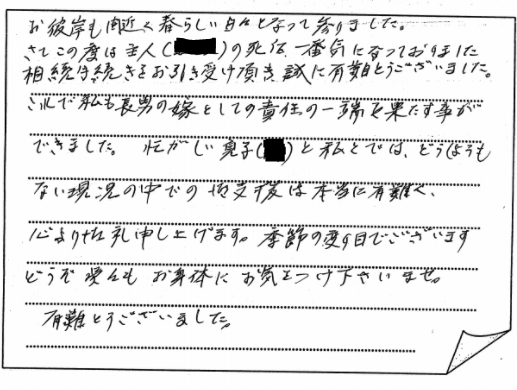 お彼岸も間近く春らしい日々となって参りました。
さてこの度は主人()の死後一番気になっておりました
相続手続きをお引き受け頂き誠に有難とうございました。
これで私も長男の嫁としての責任の一端を果たす事が
できました。忙がしい息子()と私とでは、どうしようも
ない現況の中での御支援は本当に有難く、
心より御礼申し上げます。季節の変り目でございます
どうぞ皆んも お身体に お気をつけ下さいませ。
有難とうございました。